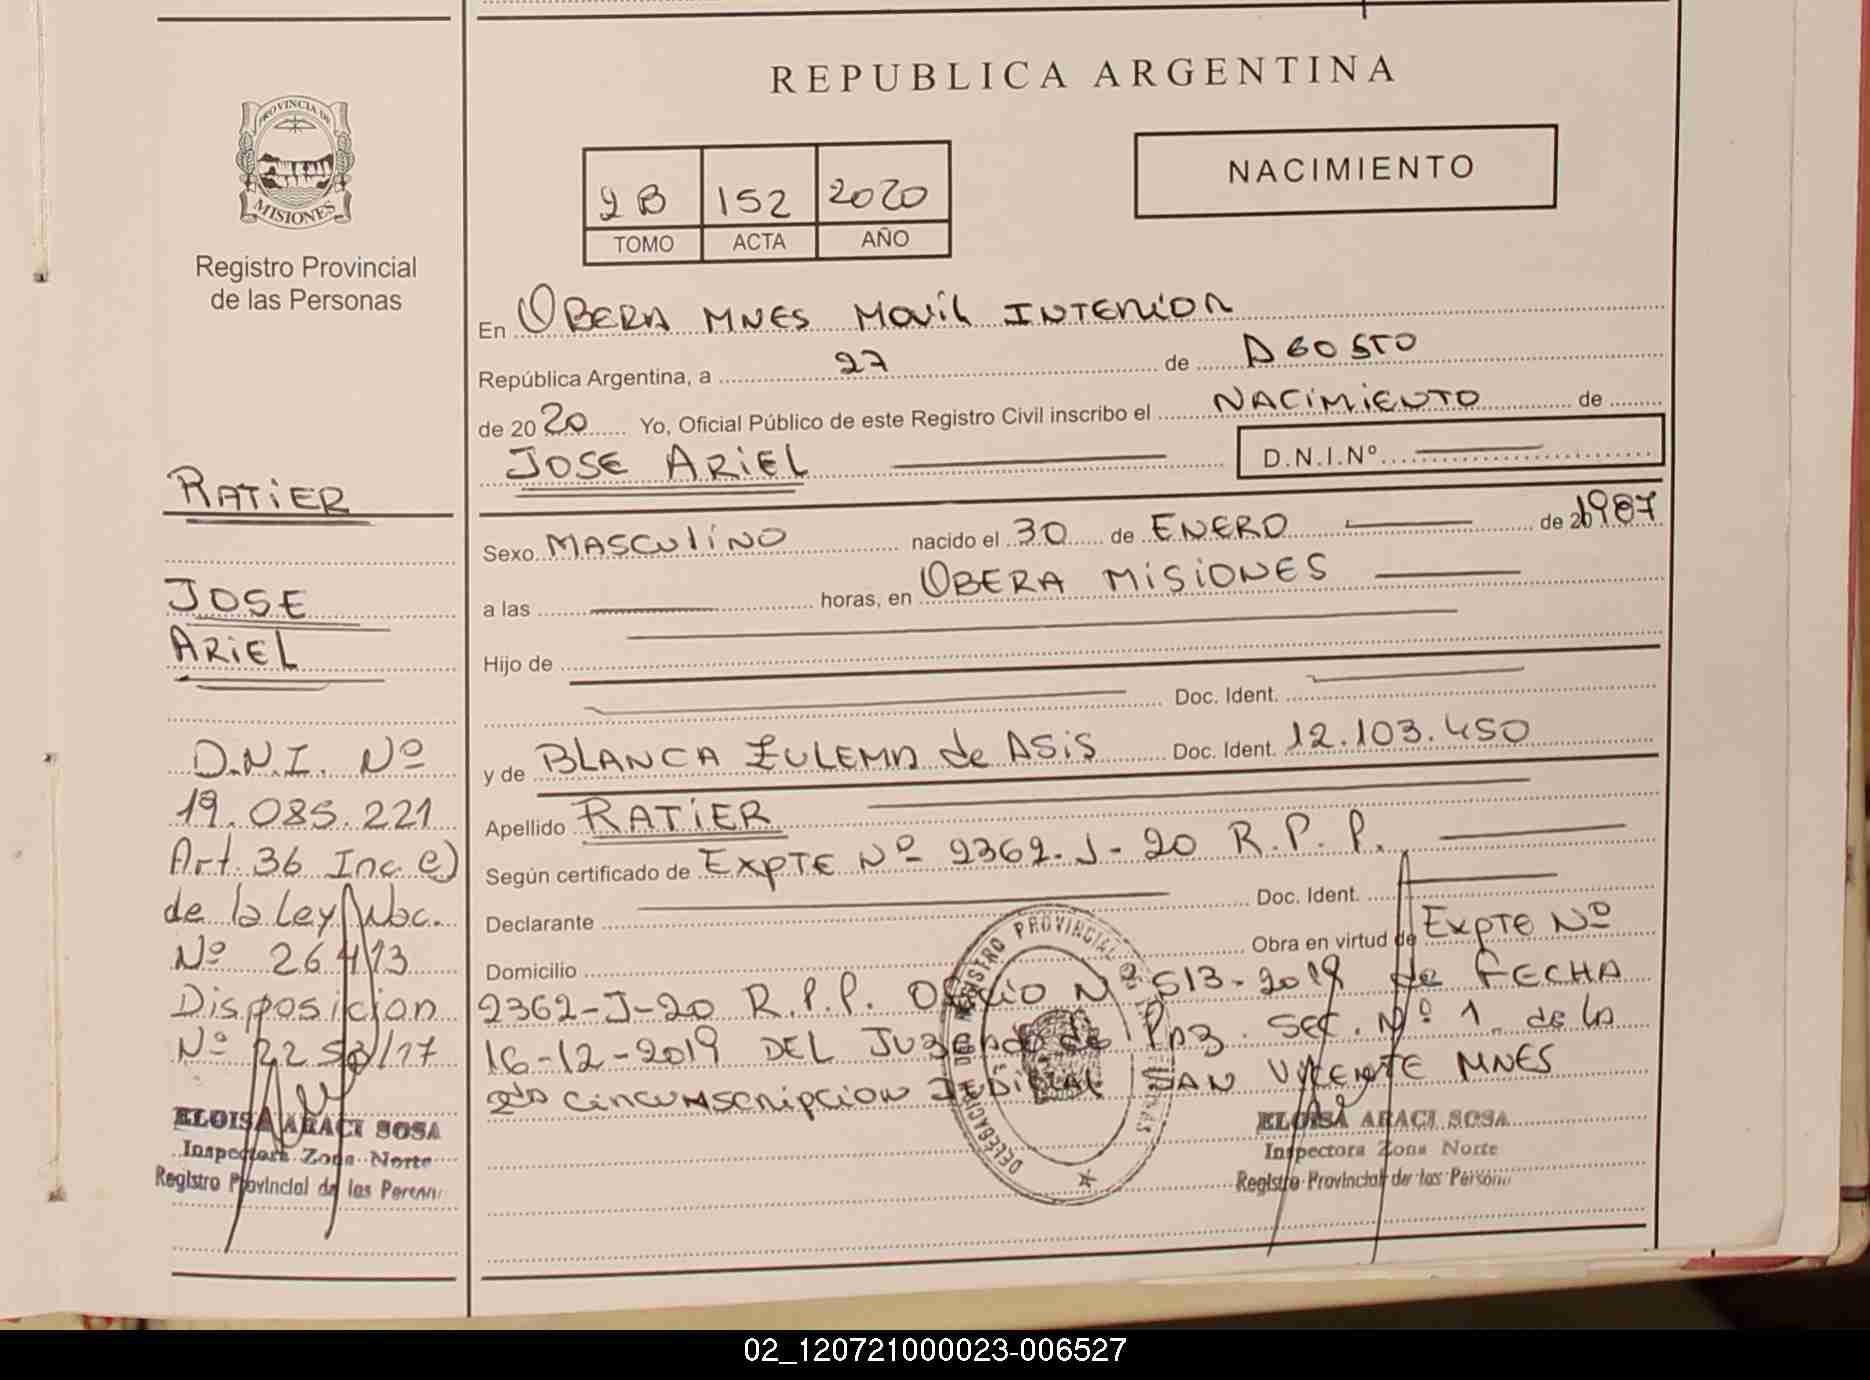 REPUBLICA ARGENTINA
PROVINCIA DE
MISIONES
Registro Provincial
de las Personas
2B 152 2020
TOMO ACTA AÑO
NACIMIENTO
En OBERA MNES MOVIL INTERIOR
República Argentina, a 27 de AGOSTO
de 2020 Yo, Oficial Público de este Registro Civil inscribo el NACIMIENTO de
JOSE ARIEL D.N.I.Nº
Sexo MASCULINO nacido el 30 de ENERO de 20 1987
a las horas, en OBERA MISIONES
Hijo de
Doc. Ident.
y de BLANCA ZULEMA de ASIS Doc. Ident. 12.103.450
Apellido RATIER
Según certificado de EXPTE Nº 2362-J-20 R.P.P.
Declarante Doc. Ident.
Domicilio Obra en virtud de EXPTE Nº
2362-J-20 R.P.P. OFICIO Nº 513-2019 de FECHA
16-12-2019 DEL JUZGADO de PAZ SEC. Nº 1 de la
2da CIRCUNSCRIPCION JUDICIAL SAN VICENTE MNES
ELOISA ARACI SOSA
Inspectora Zona Norte
Registro Provincial de las Persona
RATIER
JOSE
ARIEL
D.N.I. Nº
19.085.221
Art. 36 Inc e)
de la Ley Nac.
Nº 26413
Disposicion
Nº 2253/17
ELOISA ARACI SOSA
Inspectora Zona Norte
Registro Provincial de las Person
REGISTRO PROVINCIAL
DELEGACION
02_120721000023-006527